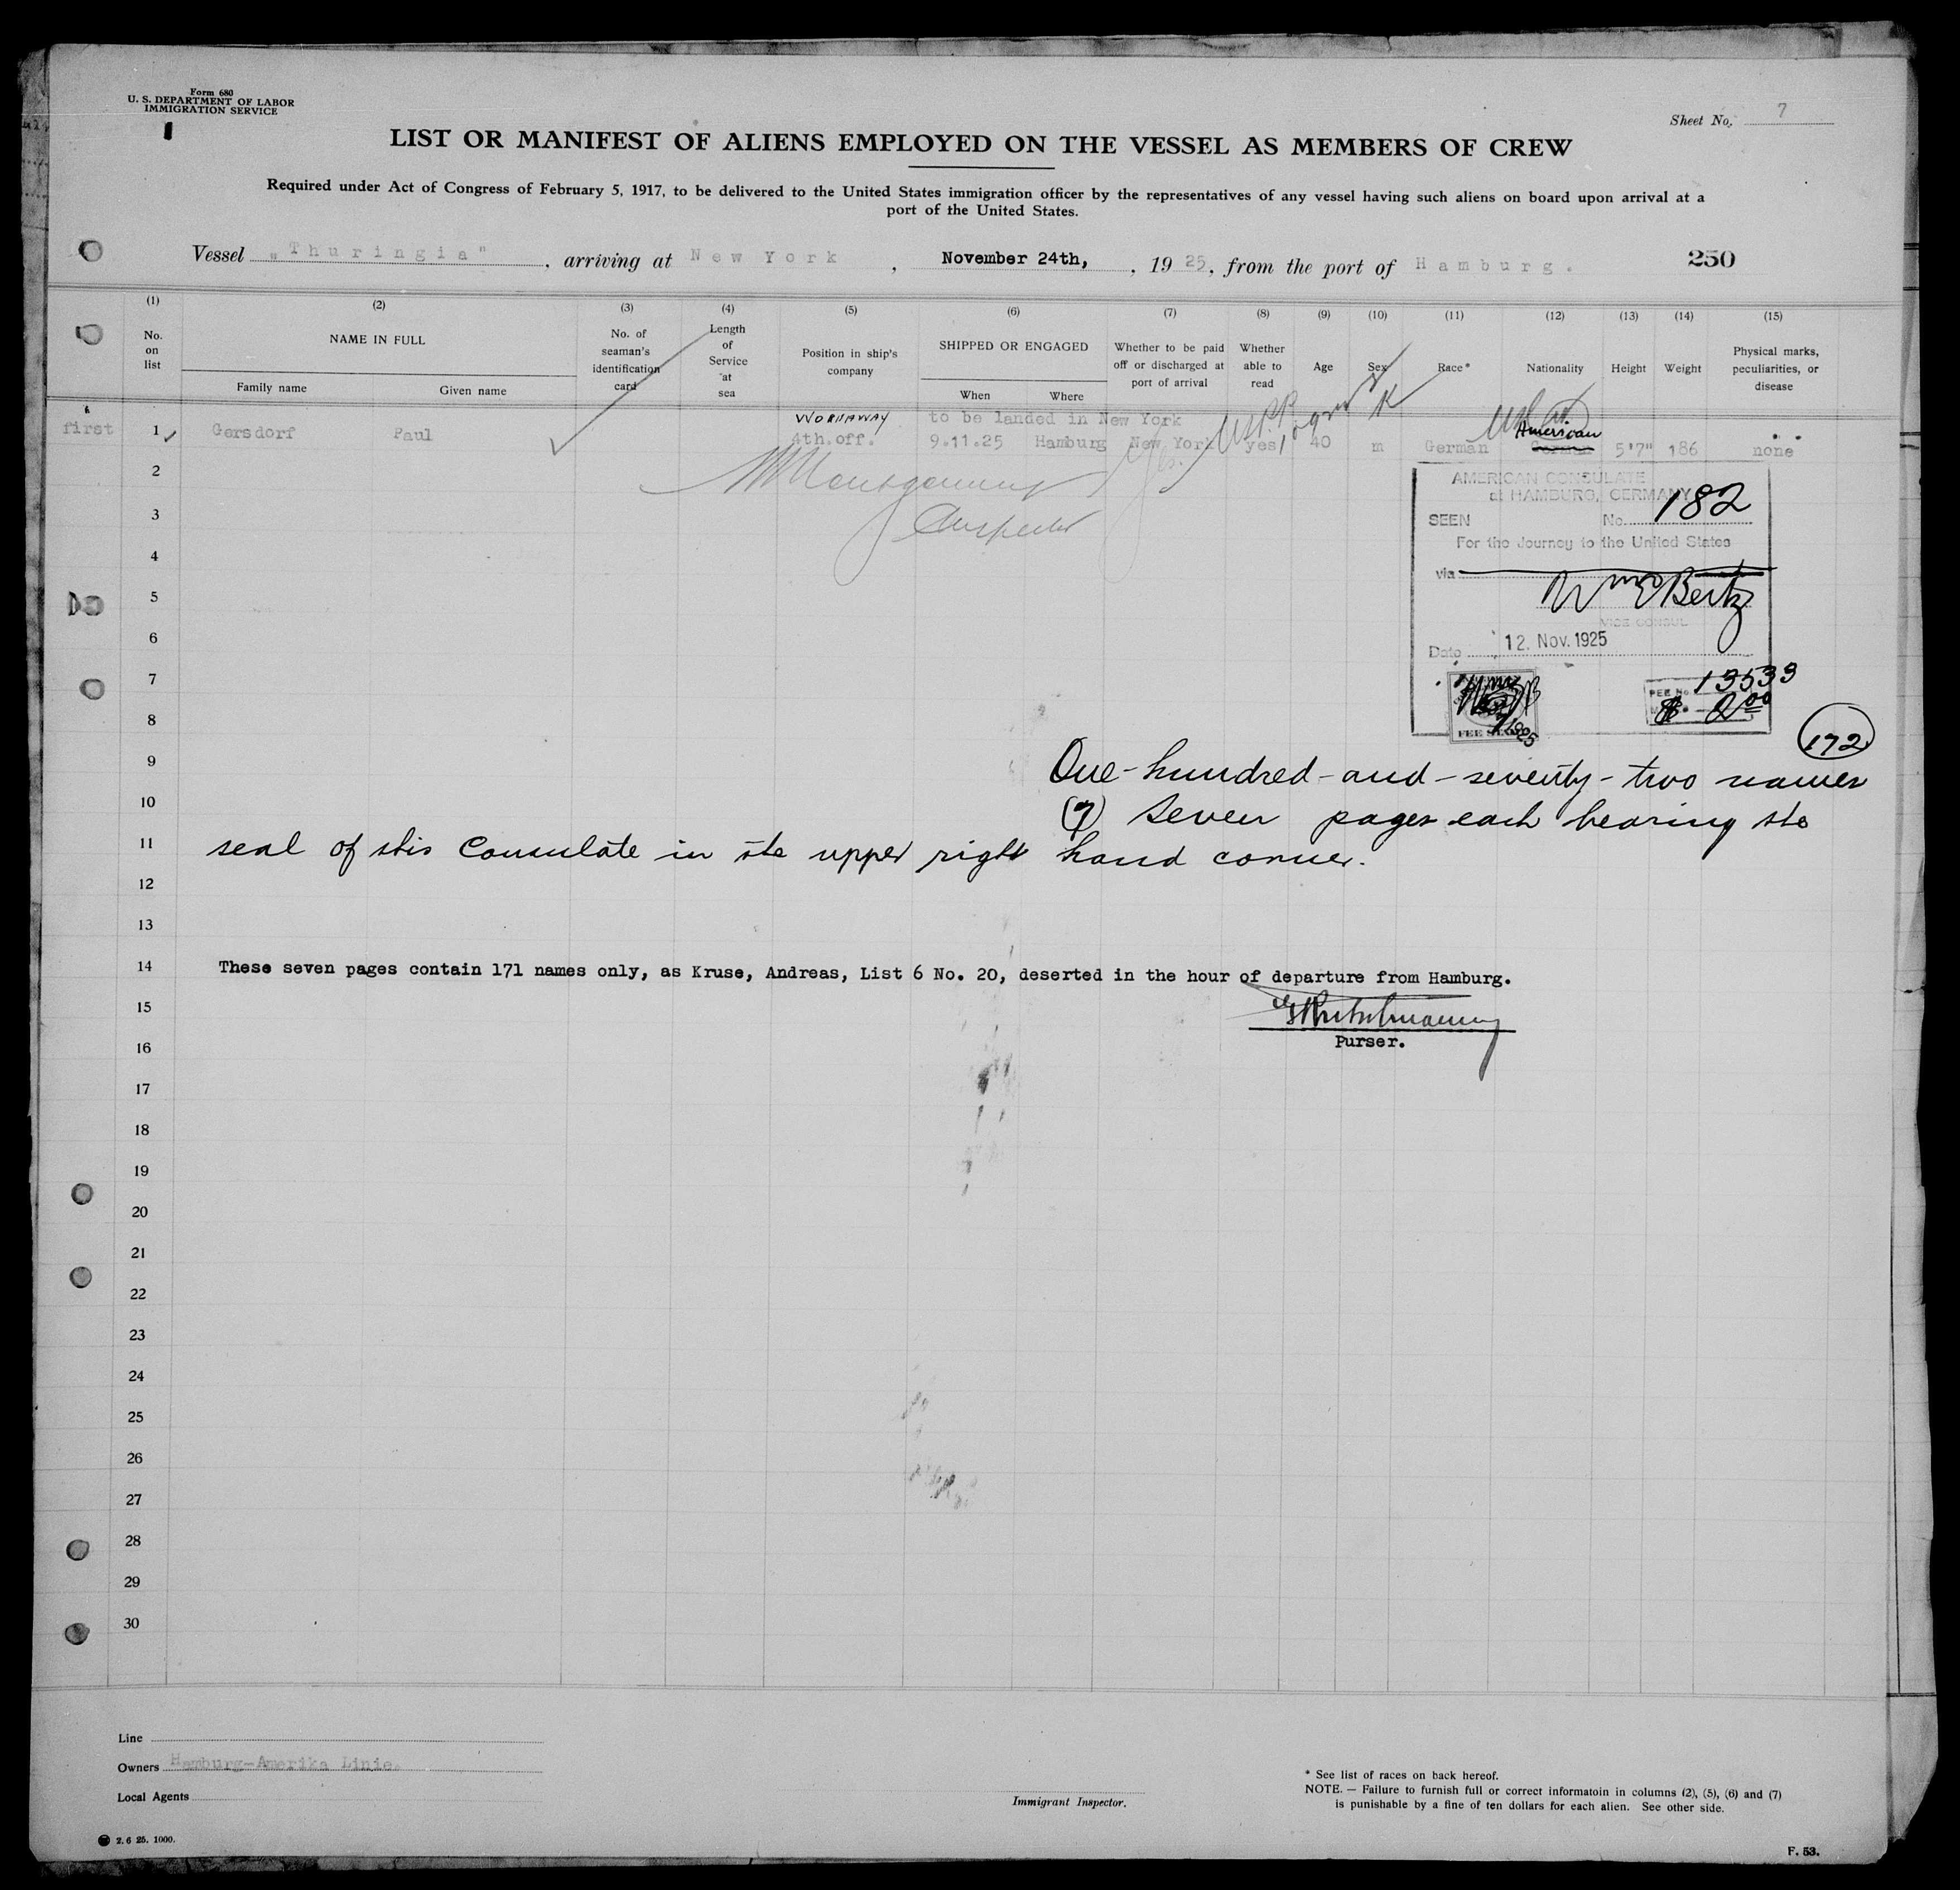 Form 680
U. S. DEPARTMENT OF LABOR
IMMIGRATION SERVICE
Sheet No. 7
LIST OR MANIFEST OF ALIENS EMPLOYED ON THE VESSEL AS MEMBERS OF CREW
Required under Act of Congress of February 5, 1917, to be delivered to the United States immigration officer by the representatives of any vessel having such aliens on board upon arrival at a
port of the United States.
Vessel „Thuringia", arriving at New York, November 24th, , 1925, from the port of Hamburg. 250
(1) (2) (3) (4) (5) (6) (7) (8) (9) (10) (11) (12) (13) (14) (15)
No. on list
NAME IN FULL
Family name Given name
No. of seaman's identification card
Length of Service at sea
Position in ship's company
SHIPPED OR ENGAGED
When Where
Whether to be paid off or discharged at port of arrival
Whether able to read
Age
Sex
Race*
Nationality
Height
Weight
Physical marks, peculiarities, or disease
WORKAWAY to be landed in New York
first 1 Gersdorf Paul 4th.off. 9.11.25 Hamburg New York yes 40 m German American 5'7" 186 none
2
Montgomery
3
Inspector
AMERICAN CONSULATE
at HAMBURG, GERMANY
SEEN No. 182
For the Journey to the United States
via
Wm Bertz
VICE CONSUL
Date 12. Nov. 1925
FEE No. 13533
$ 2.00
FEE
1925
172
4
5
6
7
8
9 One-hundred-and-seventy-two names
10 (7) Seven pages each bearing the
11 seal of this Consulate in the upper right hand corner.
12
13
14 These seven pages contain 171 names only, as Kruse, Andreas, List 6 No. 20, deserted in the hour of departure from Hamburg.
15
16 Purser.
17
18
19
20
21
22
23
24
25
26
27
28
29
30
Line
Owners Hamburg-Amerika Linie.
Local Agents
Immigrant Inspector.
* See list of races on back hereof.
NOTE. — Failure to furnish full or correct informatoin in columns (2), (5), (6) and (7)
is punishable by a fine of ten dollars for each alien. See other side.
2. 6 25. 1000.
F. 53.